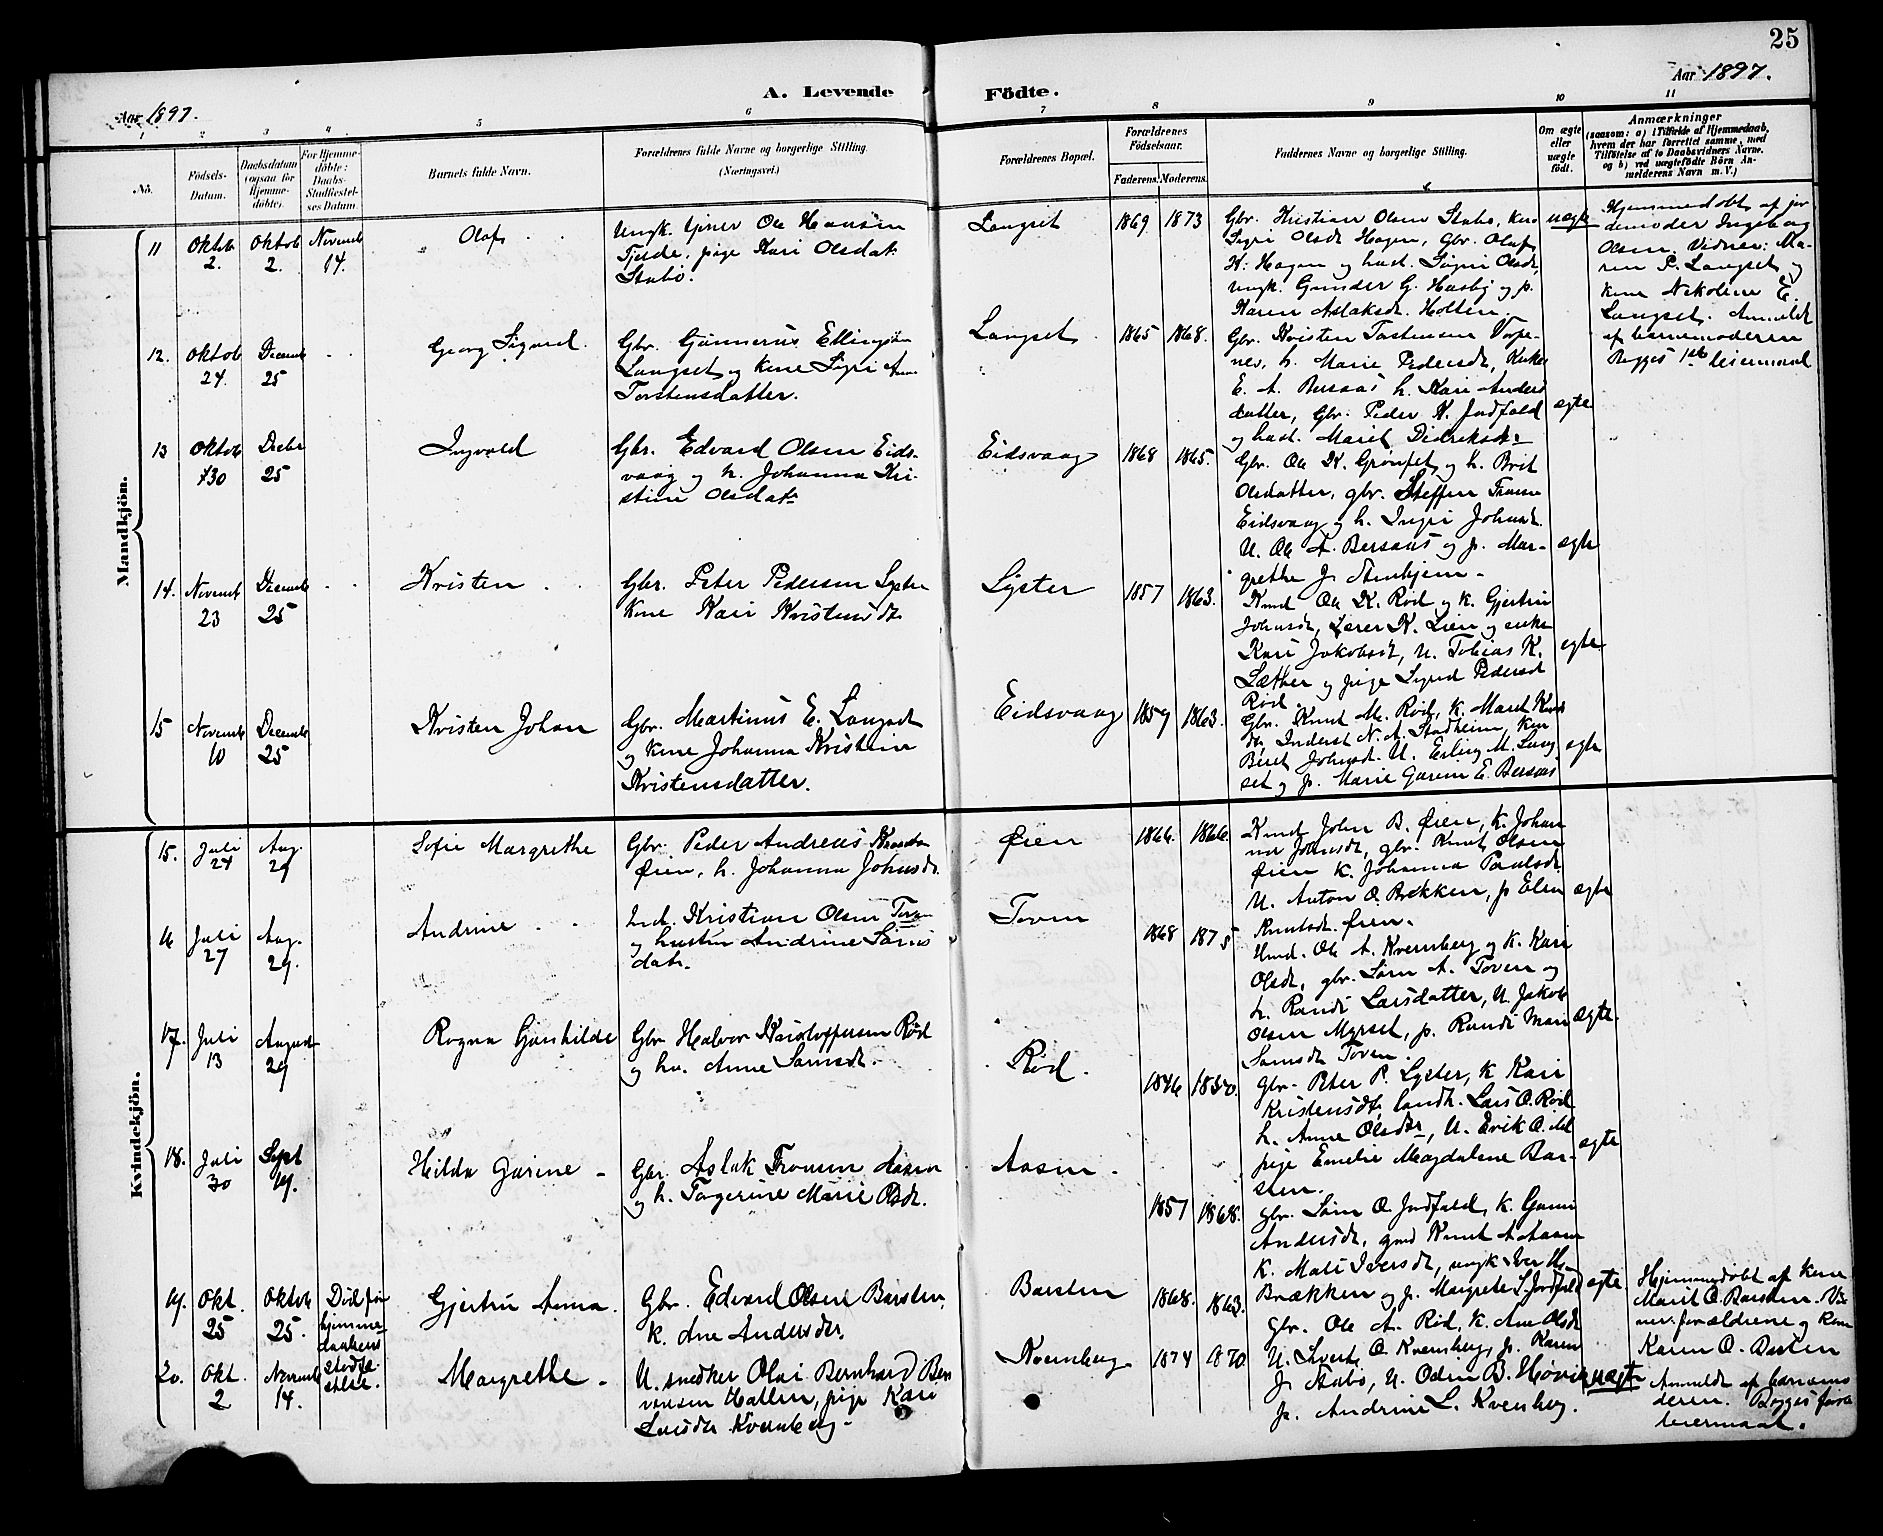 25
Aar 1897.
A. Levende Födte.
Aar 1897.
1 2 3 4 5 6 7 8 9 10 11
No.
Födsels-Datum.
Daabsdatum (ogsaa for Hjemmedöbte).
For Hjemmedöbte: Daabs-Stadfæstelses Datum.
Barnets fulde Navn.
Forældrenes fulde Navne og borgerlige Stilling.
(Næringsvei.)
Forældrenes Bopæl.
Forældrenes Födselsaar.
Faderens. Moderens.
Faddernes Navne og borgerlige Stilling.
Om ægte eller uægte födt.
Anmærkninger
(saasom: a) i Tilfælde af Hjemmedaab, hvem der har forrettet samme, med Tilföielse af to Daabsvidners Navne, og b) ved uægtefödte Börn Anmelderens Navn m. V.)
Mandkjön.
11 Oktob 2. Oktob 2. Novemb 14.
Olaf
Ungk. Ole Hansen
Tjelde, pige Kari Olsdat
Stabo.
Langset 1869 1873
Gbr. Kristian Olsen Stabo, kone
Sigri Olsdt Hagen, Gbr. Oluf
K. Hagen og hust. Sigri Olsdt,
ungk. Gunder G. Husby og p.
Karen Aslaksdt. Holten.
uægte
Hjemmedøbt af jor
demoder Ingeborg
Olsen. Vidner: Ma-
ren P. Langset og
kone Nikoline E.
Langset. Anmeldt
af barnemoderen
Begges 1ste leiermaal
12. Oktob 24. Decemb 25
Georg Sigurd.
Gbr. Gunnerus Ellingsen
Langset og kone Sigri
Torstensdatter.
Langset 1865 1868.
Gbr. Kristen Torstensen
h. Marie Pedersdt, Enke
E. A. Bersaas h. Kari Anders
datter, Gbr. Peder K. Jodfald
og hust. Marit Didriksdr
ægte
13 Oktob 30 Decbr 25
Ingvald
Gbr. Edvard Olsen Eids-
vaag og h. Johanna Kri-
stine Olsdatr
Eidsvaag 1868 1865.
Gbr. Ole K. Grønset og h. Brit
Olsdatter, gbr. Steffen Tronsen
Eidsvaag og h. Ingri Johnsdt.
U. Ole A. Bersaas og p. Mar-
grethe J.
ægte
14. Novemb 23 Decemb 25
Kristen
Gbr. Peter Pedersen Lyster
kone Kari Kristensdt
Lyster 1857 1863.
Kmd Ole K. Rød og k. Gjertrü
Johnsdt, Lærer K. Lien og enke
Kari Jakobsdt, U. Tobias K.
Sæther og pige Sigrid Pedersdt
Rød.
ægte
15 Novemb 10 Decemb 25
Kristen Johan
Gbr. Martinus E. Langset
og kone Johanna Kristine
Kristensdatter.
Eidsvaag 1859 1863.
Gbr. Knut M. Rød, k. Marit Knut
dtr, Inderst N. A. Stadheim, kone
Beret Johnsdt. U. Erling M. Lang
set og p. Marie Gurine E. Bersaas
ægte
Kvindekjön.
15. Juli 24 Aug. 29
Sofie Margrethe
Gbr. Peder Andreas Knudsen
Øien, h. Johanna Johnsdt.
Øien 1866. 1866.
Kmd John B. Øien, k. Johan
na Johnsdt, gbr. Knut Olsen
Øien k. Johanna Paulsdt
U. Anton O. Brekken, p Elen
Knutsdt. Øien.
ægte
16 Juli 27 Aug. 29.
Andrine
Ind. Kristian Olsen Toven
og hustru Andrine Larsdatr.
Toven 1868 1875
Hmd. Ole A. Kvernberg og k. Kari
Olsdt, gbr. Lars A. Toven og
h. Randi Larsdatter, U. Jakob
Olsen Myrset, p. Randi Mari
Larsdt Toven.
ægte.
17. Juli 13 August 29
Ragna Gunhilde
Gbr Halvor Kristoffersen Rød
og hu. Anne Larsdt.
Rød. 1846 1850.
Gbr. Peter P. Lyster, k Kari
Kristensdt, landh. Lars O. Rød
h. Anne Olsdtr, U. Erik O.
pige Emelie Magdalene Bar-
sten.
ægte
18. Juli 30 Sept 19.
Hilda Gurine
Gbr. Aslak Tronsen Aasen
og h. Tøgerine Marie Pdt.
Aasen. 1857 1868.
Gbr. Lars O. Jodfald, k. Guri
Andersdt, gmd Knut A Aasen
k. Mali Iversdt, ungk Iver H.
Brækken og p. Margrete S. Jodfald
ægte.
19. Okt. 25 Oktob 25. Død før hjemmedaabens stadfæstelse.
Gjertru Anna.
Gbr. Edvard Olsen Barsten,
k. Ane Andersdtr.
Barsten 1868. 1863.
Gbr. Ole A. Rød, k. Ane Olsdt
Hjemmedøbt af kone
Marit O. Barsten. Vid
ner. forældrene og kone
Karen O. Barsten
20. Okt. 2 Novemb 14.
Margrethe
U. snedker Olai Bernhard Ben
Hallen, pige Kari
Larsdtr Kvernberg
Kvernberg 1874 1870
U. Sivert O Kvernberg, p. Karen
J. Aabø, U. Odin B. Høvik
p. Andrine L. Kvernberg.
uægte
Anmeldt af barnemo
deren. Begges første
leiermaal.